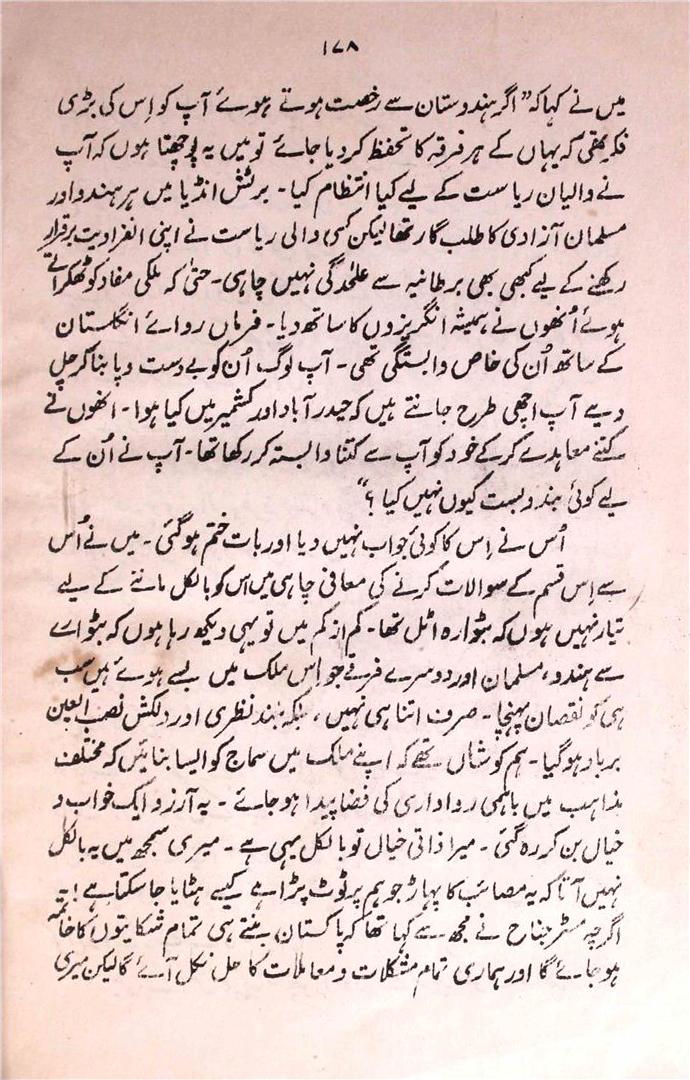 ۱۷۸
میں نے کہا کہ ”اگر ہندوستان سے رخصت ہوتے ہوئے آپ کو اِس کی بڑی
فکر تھی کہ یہاں کے ہر فرقہ کا تحفظ کر دیا جائے تو میں یہ پوچھتا ہوں کہ آپ
نے والیان ریاست کے لیے کیا انتظام کیا۔ برٹش انڈیا میں ہر ہندو اور
مسلمان آزادی کا طلب گار تھا لیکن کسی والی ریاست نے اپنی انفرادیت برقرار
رکھنے کے لیے کبھی بھی برطانیہ سے علٰحدگی نہیں چاہی۔ حتیٰ کہ ملکی مفاد کو ٹھکراتے
ہوئے اُنھوں نے ہمیشہ انگریزوں کا ساتھ دیا۔ فرماں روائے انگلستان
کے ساتھ اُن کی خاص وابستگی تھی۔ آپ لوگ اُن کو بے دست و پا بنا کر چل
دیے آپ اچھی طرح جانتے ہیں کہ حیدر آباد اور کشمیر میں کیا ہوا۔ انھوں نے
کتنے معاہدے کر کے خود کو آپ سے کتنا وابستہ کر رکھا تھا۔ آپ نے اُن کے
لیے کوئی بندوبست کیوں نہیں کیا ؟“
اُس نے اِس کا کوئی جواب نہیں دیا اور بات ختم ہوگئی۔ میں نے اُس
سے اِس قسم کے سوالات کرنے کی معافی چاہی میں اس کو بالکل ماننے کے لیے
تیار نہیں ہوں کہ بٹوارہ اٹل تھا۔ کم از کم میں تو یہی دیکھ رہا ہوں کہ بٹوارے
سے ہندو، مسلمان اور دوسرے فرقے جو اِس ملک میں بسے ہوئے ہیں سب
ہی کو نقصان پہنچا۔ صرف اتنا ہی نہیں، بلکہ بلند نظری اور دلکش نصب العین
برباد ہو گیا۔ ہم کوشاں تھے کہ اپنے ملک میں سماج کو ایسا بنائیں کہ مختلف
مذاہب میں باہمی رواداری کی فضا پیدا ہو جائے۔ یہ آرزو ایک خواب و
خیال بن کر رہ گئی۔ میرا ذاتی خیال تو بالکل یہی ہے۔ میری سمجھ میں یہ بالکل
نہیں آتا کہ یہ مصائب کا پہاڑ جو ہم پر ٹوٹ پڑا ہے کیسے ہٹایا جا سکتا ہے !۔
اگرچہ مسٹر جناح نے مجھ سے کہا تھا کہ پاکستان بنتے ہی تمام شکایتوں کا خاتمہ
ہو جائے گا اور ہماری تمام مشکلات و معاملات کا حل نکل آئے گا لیکن میری